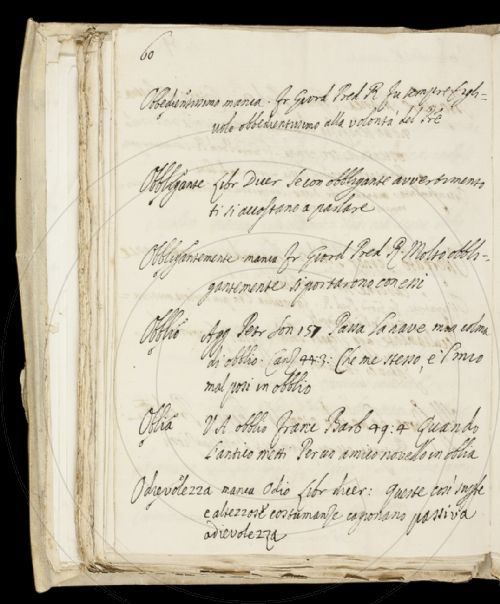 60
Obbedientissimo manca. Fr Giord Pred R. Fu sempre figli-
uolo obbedientissimo alla volontà del Pre
Obbligante Libr Dicer Se con obbligante avvertimento
ti si accostano a parlare
Obbligantemente manca Fr Giord Pred R. Molto obbli-
gantemente si portarono con essi
Obblio Agg Petr Son 157 Passa la nave mia colma
di obblio. Canz 44:3: Che me stesso, e 'l mio
mal posi in obblio
Oblia V. A. obblio Franc Barb 49:4 Quando
L'antico metti Per un amico novello in oblia
Odievolezza manca Odio Libr dicer: Queste così
e costumanze cagionano
odievolezza